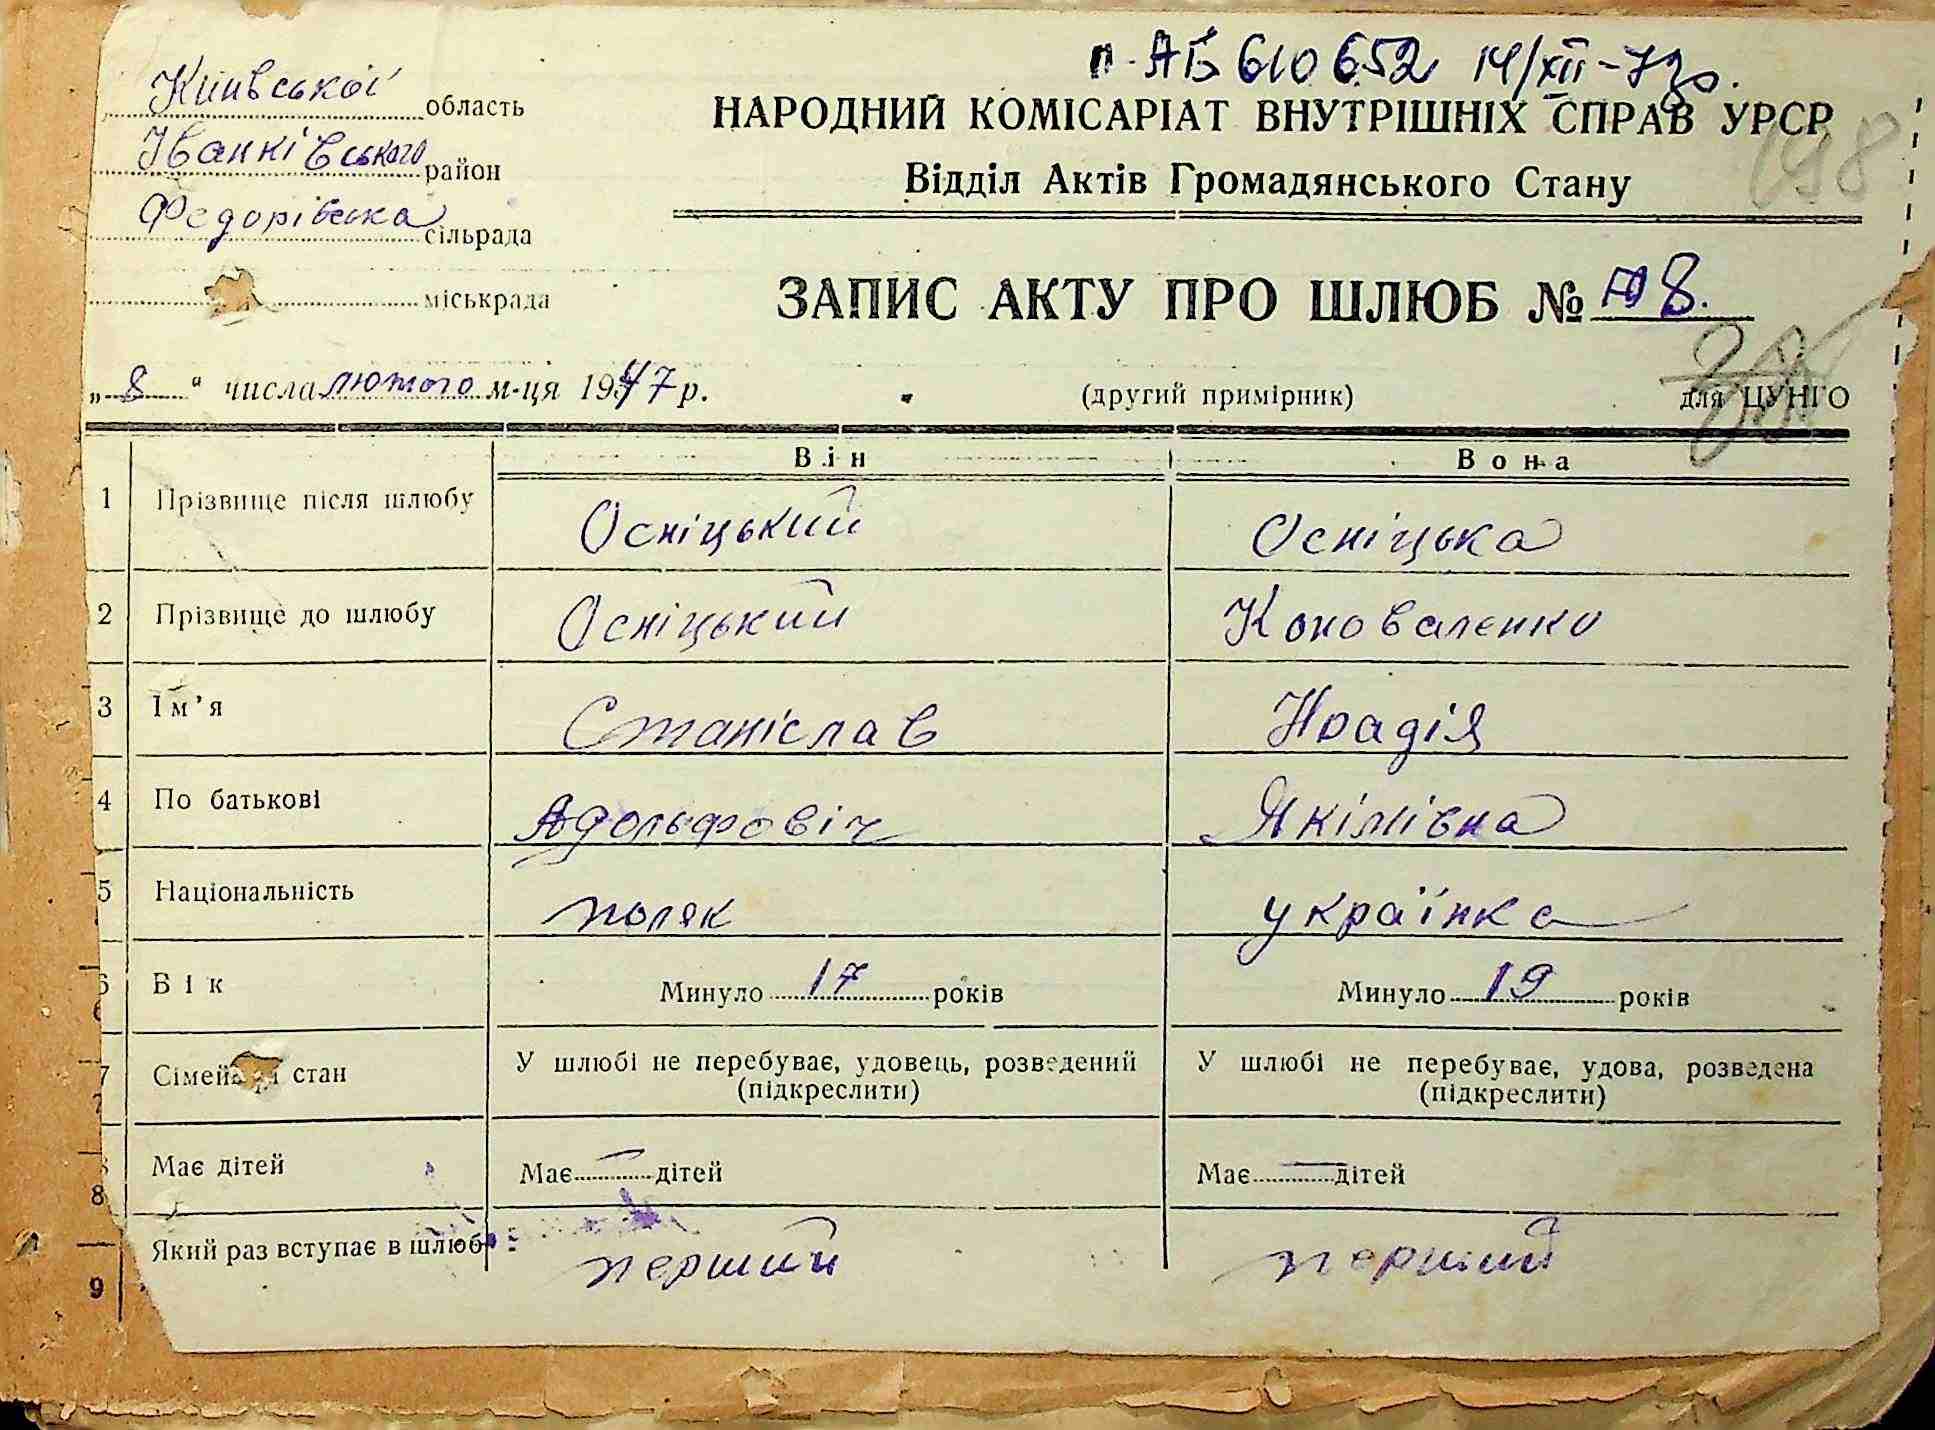 п. АБ 610652 14/XII-73р.
Київської область
Іванківського район
Федорівська сільрада
міськрада
НАРОДНИЙ КОМІСАРІАТ ВНУТРІШНІХ СПРАВ УРСР
198
Відділ Актів Громадянського Стану
ЗАПИС АКТУ ПРО ШЛЮБ № 8.
„8“ числа лютого м-ця 1947 р.
(другий примірник)
для ЦУНГО
Він Вона
1 Прізвище після шлюбу Осніцький Осніцька
2 Прізвище до шлюбу Осніцький Коноваленко
3 Ім’я Станіслав Надія
4 По батькові Адольфовіч Якімівна
5 Національність поляк українка
6 Вік Минуло 17 років Минуло 19 років
7 Сімейний стан У шлюбі не перебуває, удовець, розведений У шлюбі не перебуває, удова, розведена
(підкреслити) (підкреслити)
8 Має дітей Має — дітей Має — дітей
9 Який раз вступає в шлюб перший перший